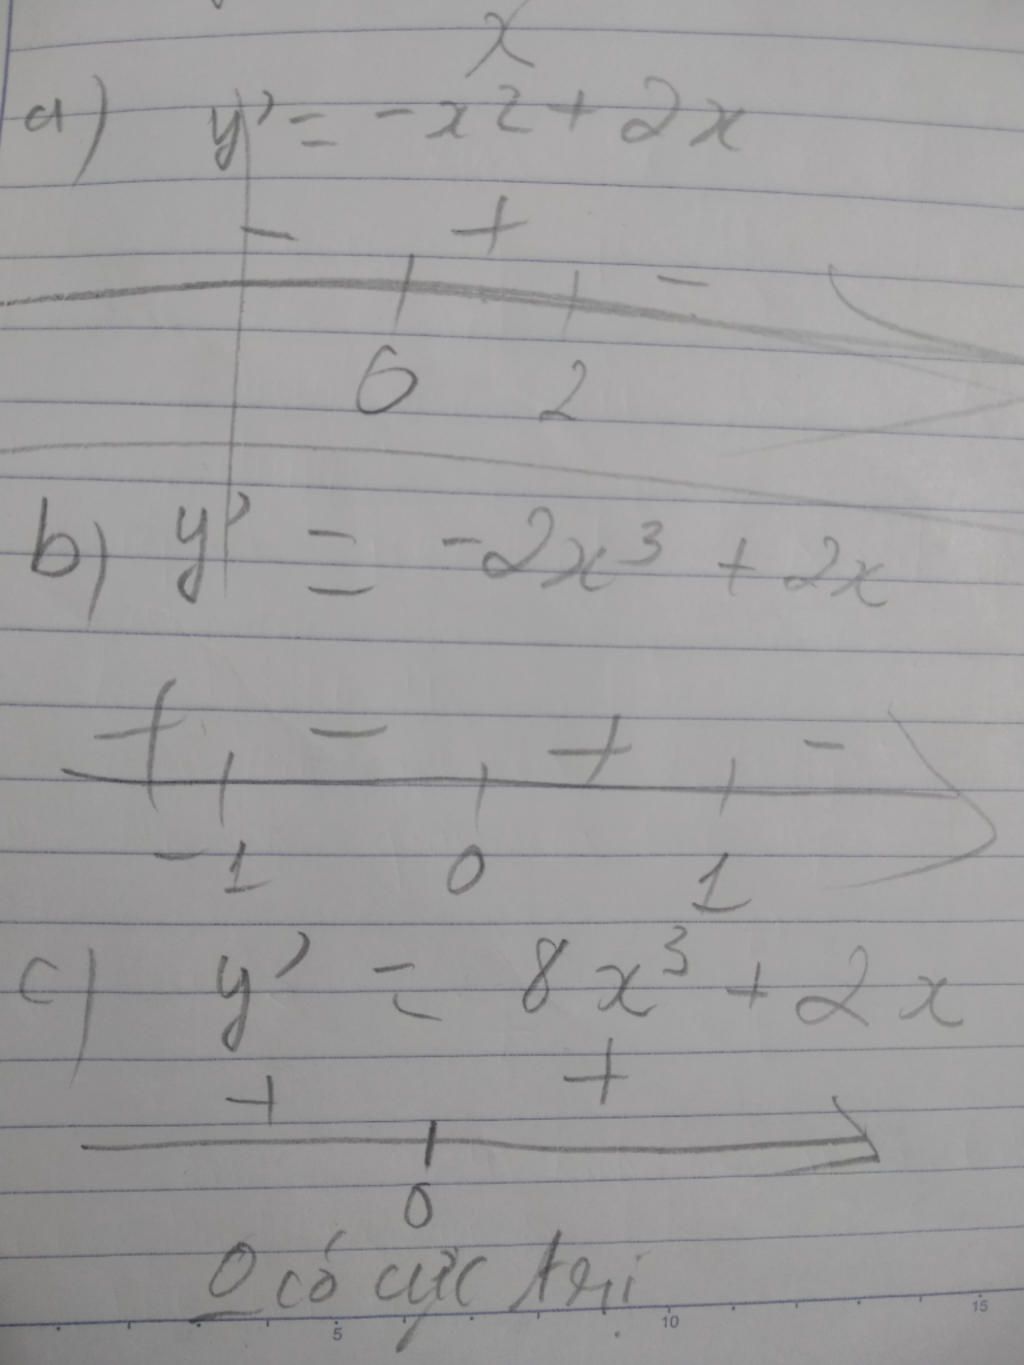 x
a) y' = -x² + 2x
- + -
0 2
b) y' = -2x³ + 2x
+ - + -
-1 0 1
c) y' = 8x³ + 2x
+ +
0
0 có cực trị
5 10 15